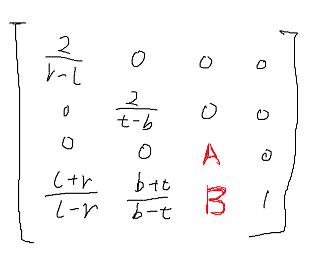 2/(r-l) 0 0 0
0 2/(t-b) 0 0
0 0 A 0
(l+r)/(l-r) (b+t)/(b-t) B 1